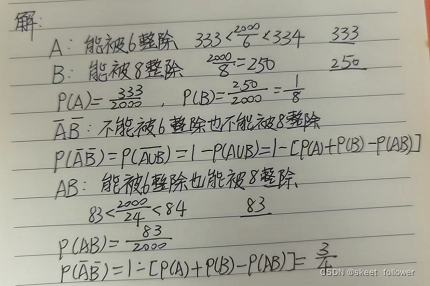 解:
A: 能被6整除 333<2000/6<334 333
B: 能被8整除 2000/8=250 250
P(A)=333/2000 , P(B)=250/2000=1/8
A̅B̅: 不能被6整除也不能被8整除
P(A̅B̅)=P(A̅U̅B̅)=1-P(AUB)=1-[P(A)+P(B)-P(AB)]
AB: 能被6整除也能被8整除
83<2000/24<84 83
P(AB)=83/2000
P(A̅B̅)=1-[P(A)+P(B)-P(AB)]=3/4
CSDN @skeet_follower